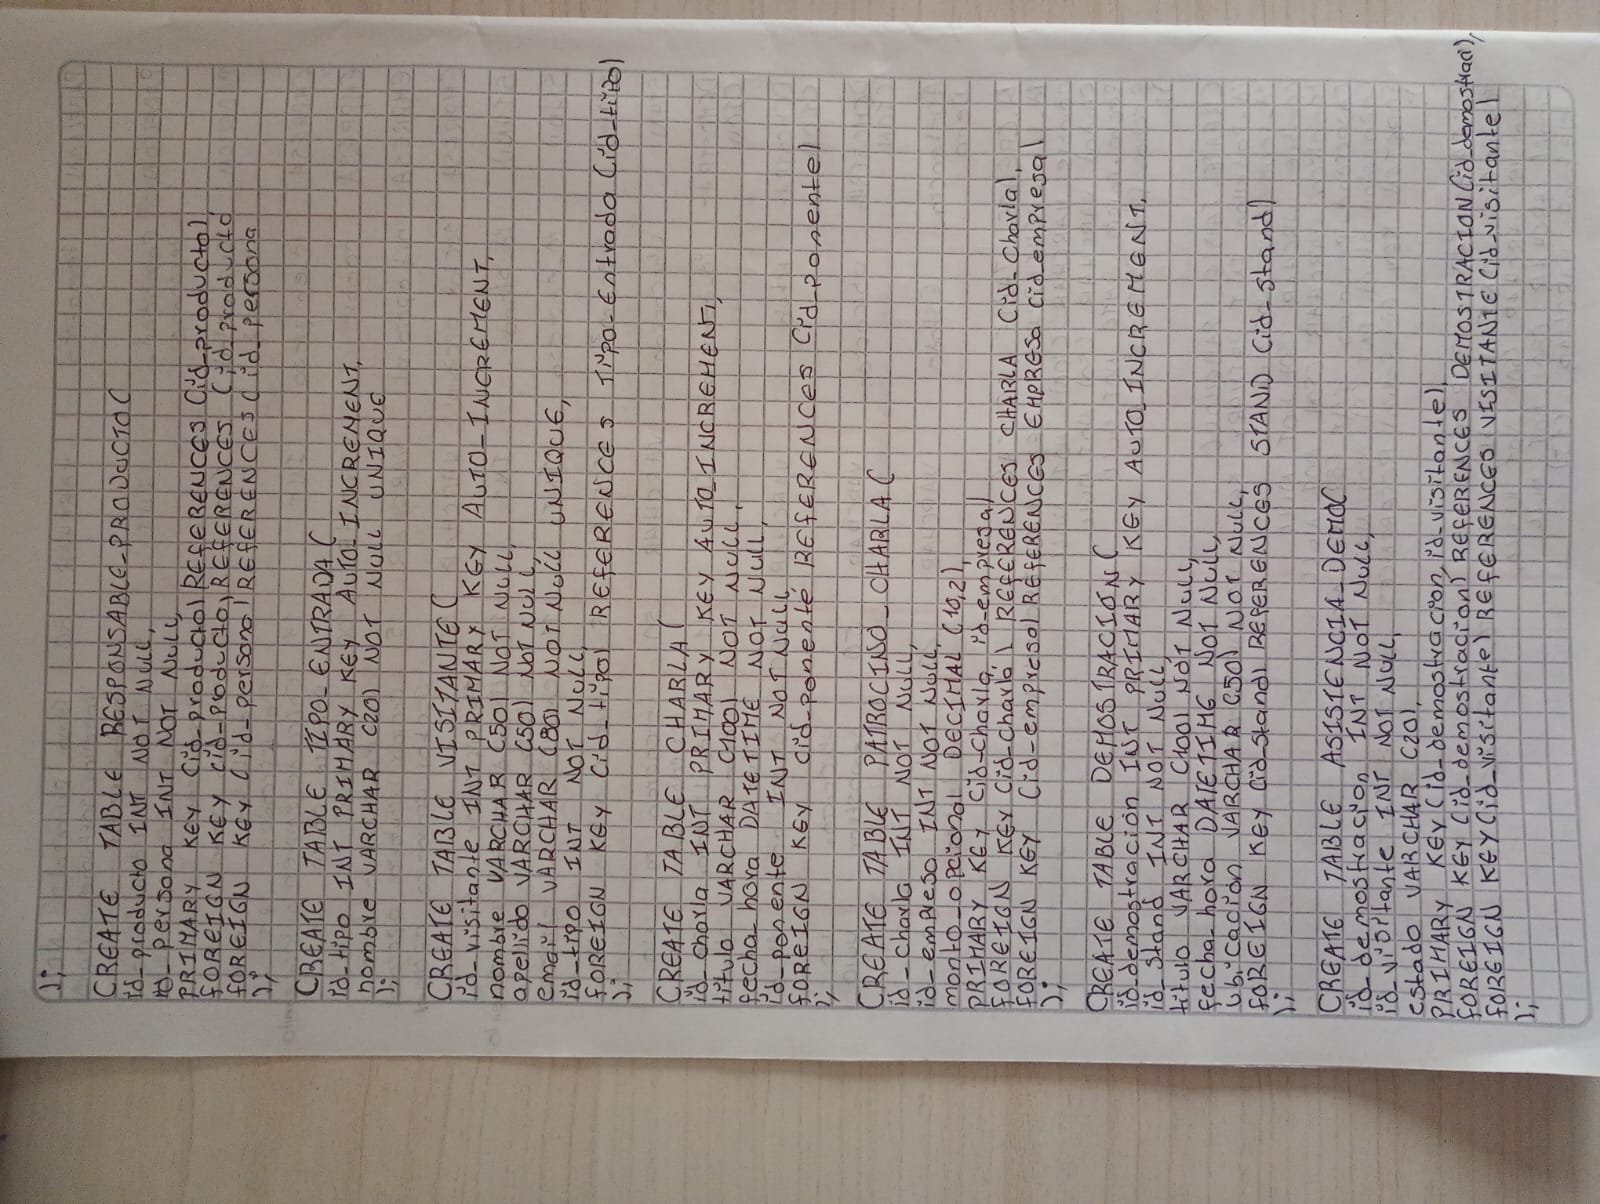 );
CREATE TABLE RESPONSABLE_PRODUCTO(
id_producto INT NOT NULL,
id_persona INT NOT NULL,
PRIMARY KEY (id_producto) REFERENCES (id_producto),
FOREIGN KEY (id_producto) REFERENCES (id_producto
FOREIGN KEY (id_persona) REFERENCES (id_persona
);
CREATE TABLE TIPO_ENTRADA(
id_tipo INT PRIMARY KEY AUTO_INCREMENT,
nombre VARCHAR (20) NOT NULL UNIQUE
);
CREATE TABLE VISITANTE(
id_visitante INT PRIMARY KEY AUTO_INCREMENT,
nombre VARCHAR (50) NOT NULL,
apellido VARCHAR (50) NOT NULL,
email VARCHAR (80) NOT NULL UNIQUE,
id_tipo INT NOT NULL,
FOREIGN KEY (id_tipo) REFERENCES TIPO_Entrada (id_tipo)
);
CREATE TABLE CHARLA(
id_charla INT PRIMARY KEY AUTO_INCREMENT,
título VARCHAR (100) NOT NULL,
fecha_hora DATETIME NOT NULL,
id_ponente INT NOT NULL
FOREIGN KEY (id_ponente) REFERENCES (id_ponente)
);
CREATE TABLE PATROCINO_CHARLA(
id_charla INT NOT NULL,
id_empresa INT NOT NULL,
monto_opcional DECIMAL (10,2),
PRIMARY KEY (id_charla, id_empresa)
FOREIGN KEY (id_charla) REFERENCES CHARLA (id_charla),
FOREIGN KEY (id_empresa) REFERENCES EMPRESA (id_empresa)
);
CREATE TABLE DEMOSTRACIÓN(
id_demostración INT PRIMARY KEY AUTO_INCREMENT,
id_stand INT NOT NULL
título VARCHAR (100) NOT NULL,
fecha_hora DATETIME NOT NULL,
ubicación VARCHAR (50) NOT NULL,
FOREIGN KEY (id_stand) REFERENCES STAND (id_stand)
);
CREATE TABLE ASISTENCIA_DEMO(
id_demostracion INT NOT NULL,
id_visitante INT NOT NULL,
estado VARCHAR (20),
PRIMARY KEY (id_demostracion, id_visitante),
FOREIGN KEY (id_demostracion) REFERENCES DEMOSTRACION (id_demostraci),
FOREIGN KEY (id_visitante) REFERENCES VISITANTE (id_visitante)
);